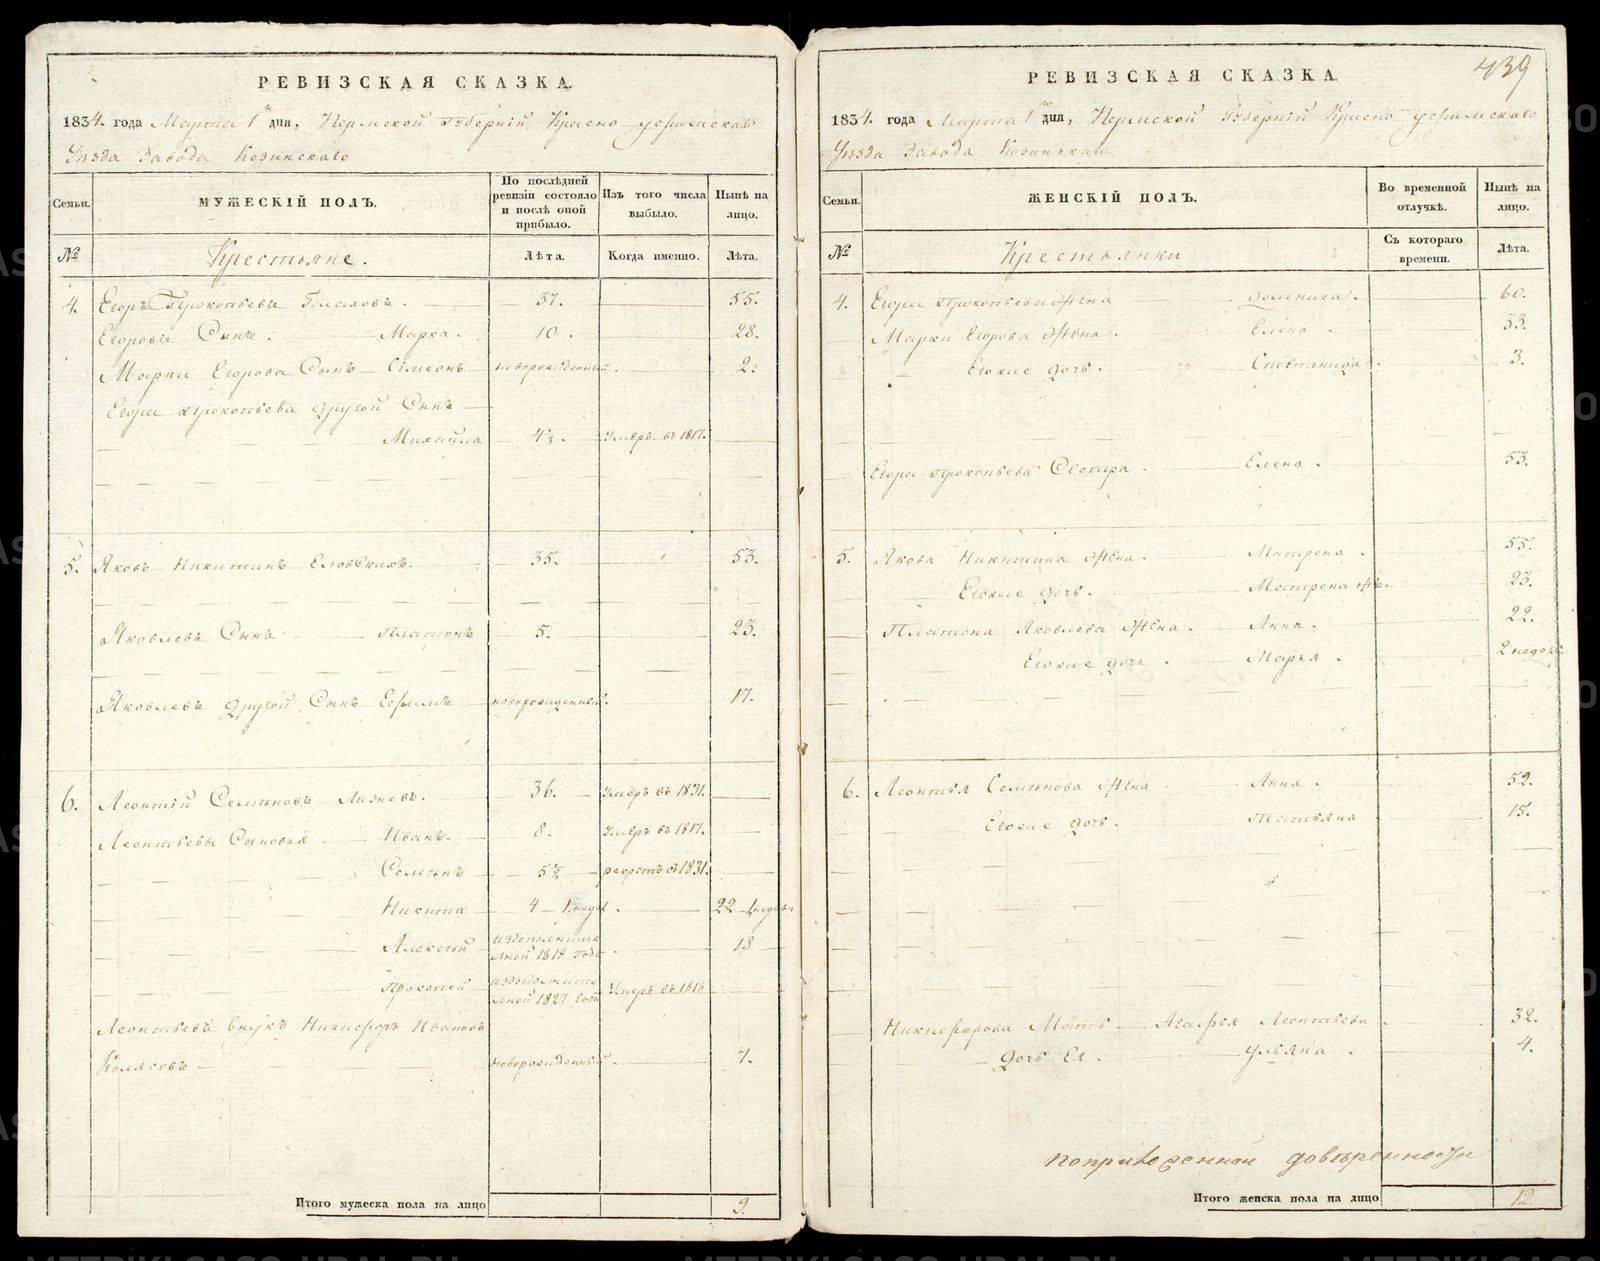 РЕВИЗСКАЯ СКАЗКА.
1834. года Марта 1го дня, Пермской Губернiи Красно уфимскаго
Уѣзда Завода Козинскаго
Семьи.
МУЖЕСКIЙ ПОЛЪ.
По послѣдней ревизiи состояло и послѣ оной прибыло.
Изъ того числа выбыло.
Нынѣ на лицо.
№
Крестьяне.
Лѣта.
Когда именно.
Лѣта.
4. Егоръ Прокопьевъ 37. 55.
Егоровъ Сынъ. Марка. 10. 28.
Марки Егорова Сынъ Сiмеонъ новорожденный. 2.
Егора Прокопьева другой Сынъ
Михайла 4 1/2. Умеръ въ 1817.
5. Яковъ Никитинъ Еловскихъ. 35. 53.
Яковлевъ Сынъ Платонъ 5. 23.
Яковлевъ другой Сынъ Ефимъ новорожденный. 17.
6. Леонтiй Семѣновъ 36. Умеръ въ 1831.
Леонтьевы Сыновья Иванъ. 8. Умеръ въ 1817.
Семѣнъ 5 1/2 рекрутъ въ 1831.
Никита 4 22
Алексѣй издополните льной 18
Прокопей издополните льной 1827 Года Умеръ въ
Леонтьевъ внукъ Никифоръ Ивановъ
Колясовъ новорожденный. 7.
Итого мужеска пола на лицо 9.
439
РЕВИЗСКАЯ СКАЗКА.
1834. года Марта 1го дня, Пермской Губернiи Красно уфимскаго
Уѣзда Завода Козинскаго
Семьи.
ЖЕНСКIЙ ПОЛЪ.
Во временной отлучкѣ.
Нынѣ на лицо.
№
Крестьянки
Съ котораго времени.
Лѣта.
4. Егора Прокопьева Жена Домника. 60.
Марки Егорова Жена. Елена 33.
Егоже дочь. Степанида. 3.
Егора Прокопьева Сестра. Елена. 53.
5. Якова Никитина Жена. Матрена. 55.
Егоже дочь. Матрена 23.
Платона Яковлева Жена. Анна. 22.
Егоже дочь. Марья. 2 недѣль
6. Леонтья Семѣнова Жена Анна. 52.
Егоже дочь. Татьяна 15.
Никиферова Мать Агафья Леонтьева 32.
Дочь Ея. Ульяна. 4.
поприложенной довѣренности
Итого женска пола на лицо 12
METRIKI.GASO-URAL.RU